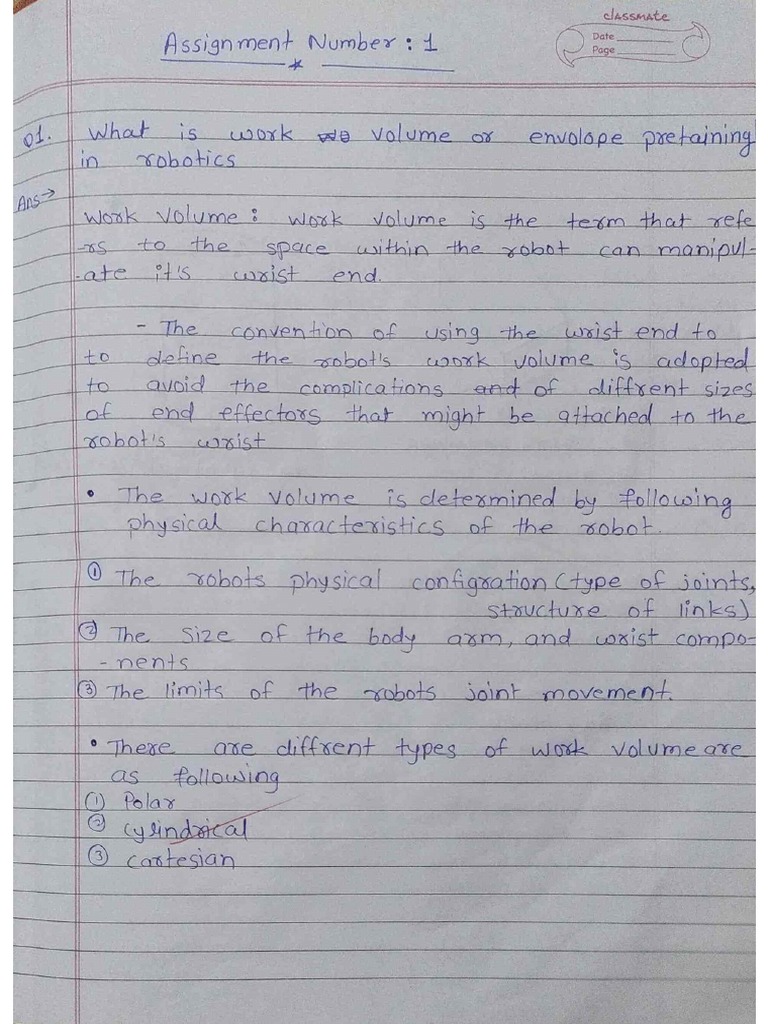 classmate
Date
Page
Assignment Number : 1
Q1. What is work volume or envolope pretaining
in robotics
Ans→
Work Volume : Work volume is the term that refe
-rs to the space within the robot can manipul-
-ate it's wrist end.
- The convention of using the wrist end to
to define the robot's work volume is adopted
to avoid the complications and of diffrent sizes
of end effectors that might be attached to the
robot's wrist
• The work volume is determined by following
physical characteristics of the robot.
① The robots physical configration (type of joints,
structure of links)
② The size of the body arm, and wrist compo-
-nents
③ The limits of the robots joint movement.
• There are diffrent types of work volume are
as following
① Polar
② Cylindrical
③ Cartesian